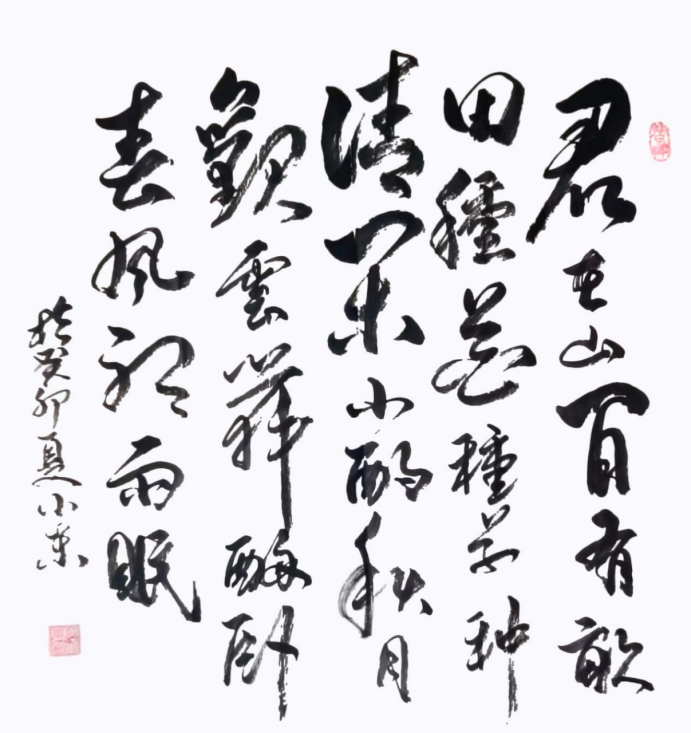 居在山間有畝
田種花種草種
清閑小酌秋月
觀雲舞卧
春風聽雨眠
於癸卯夏小